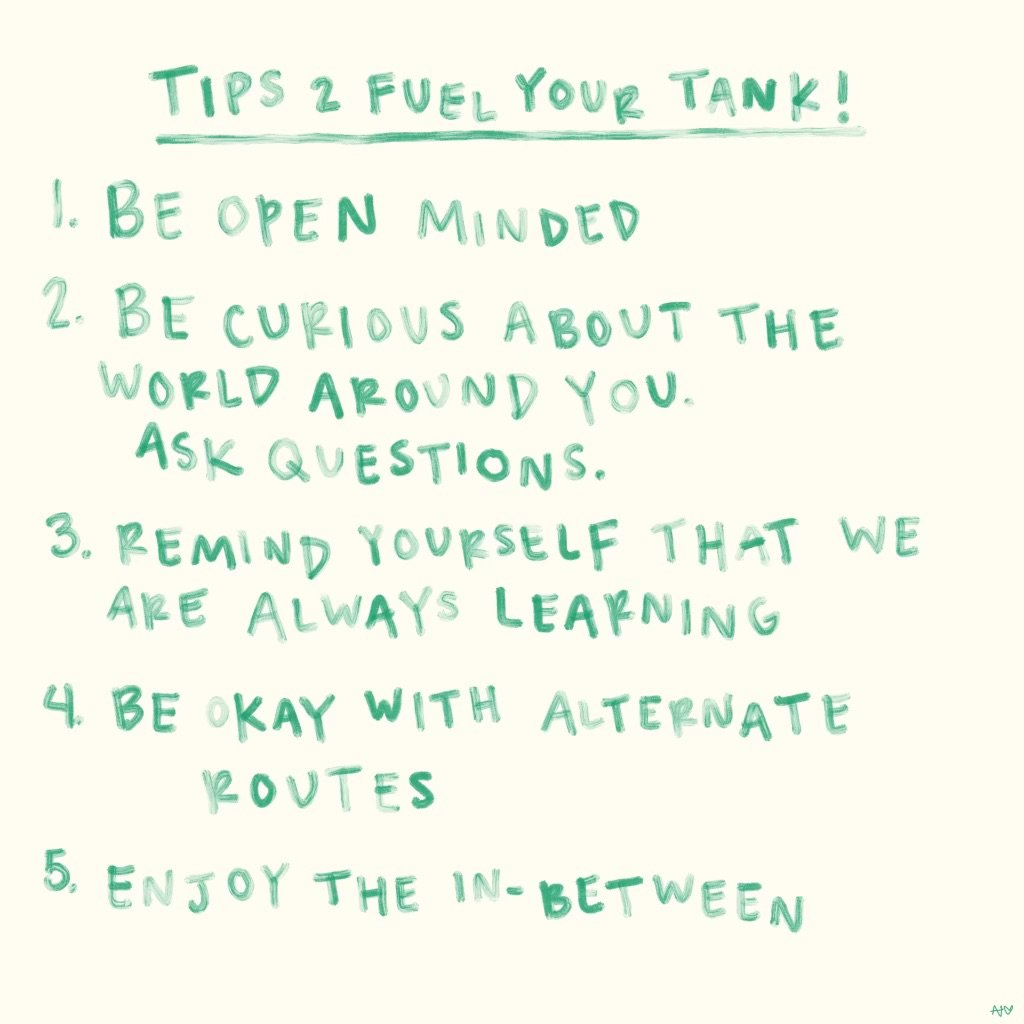 TIPS 2 FUEL YOUR TANK!
1. BE OPEN MINDED
2. BE CURIOUS ABOUT THE
WORLD AROUND YOU.
ASK QUESTIONS.
3. REMIND YOURSELF THAT WE
ARE ALWAYS LEARNING
4. BE OKAY WITH ALTERNATE
ROUTES
5. ENJOY THE IN-BETWEEN